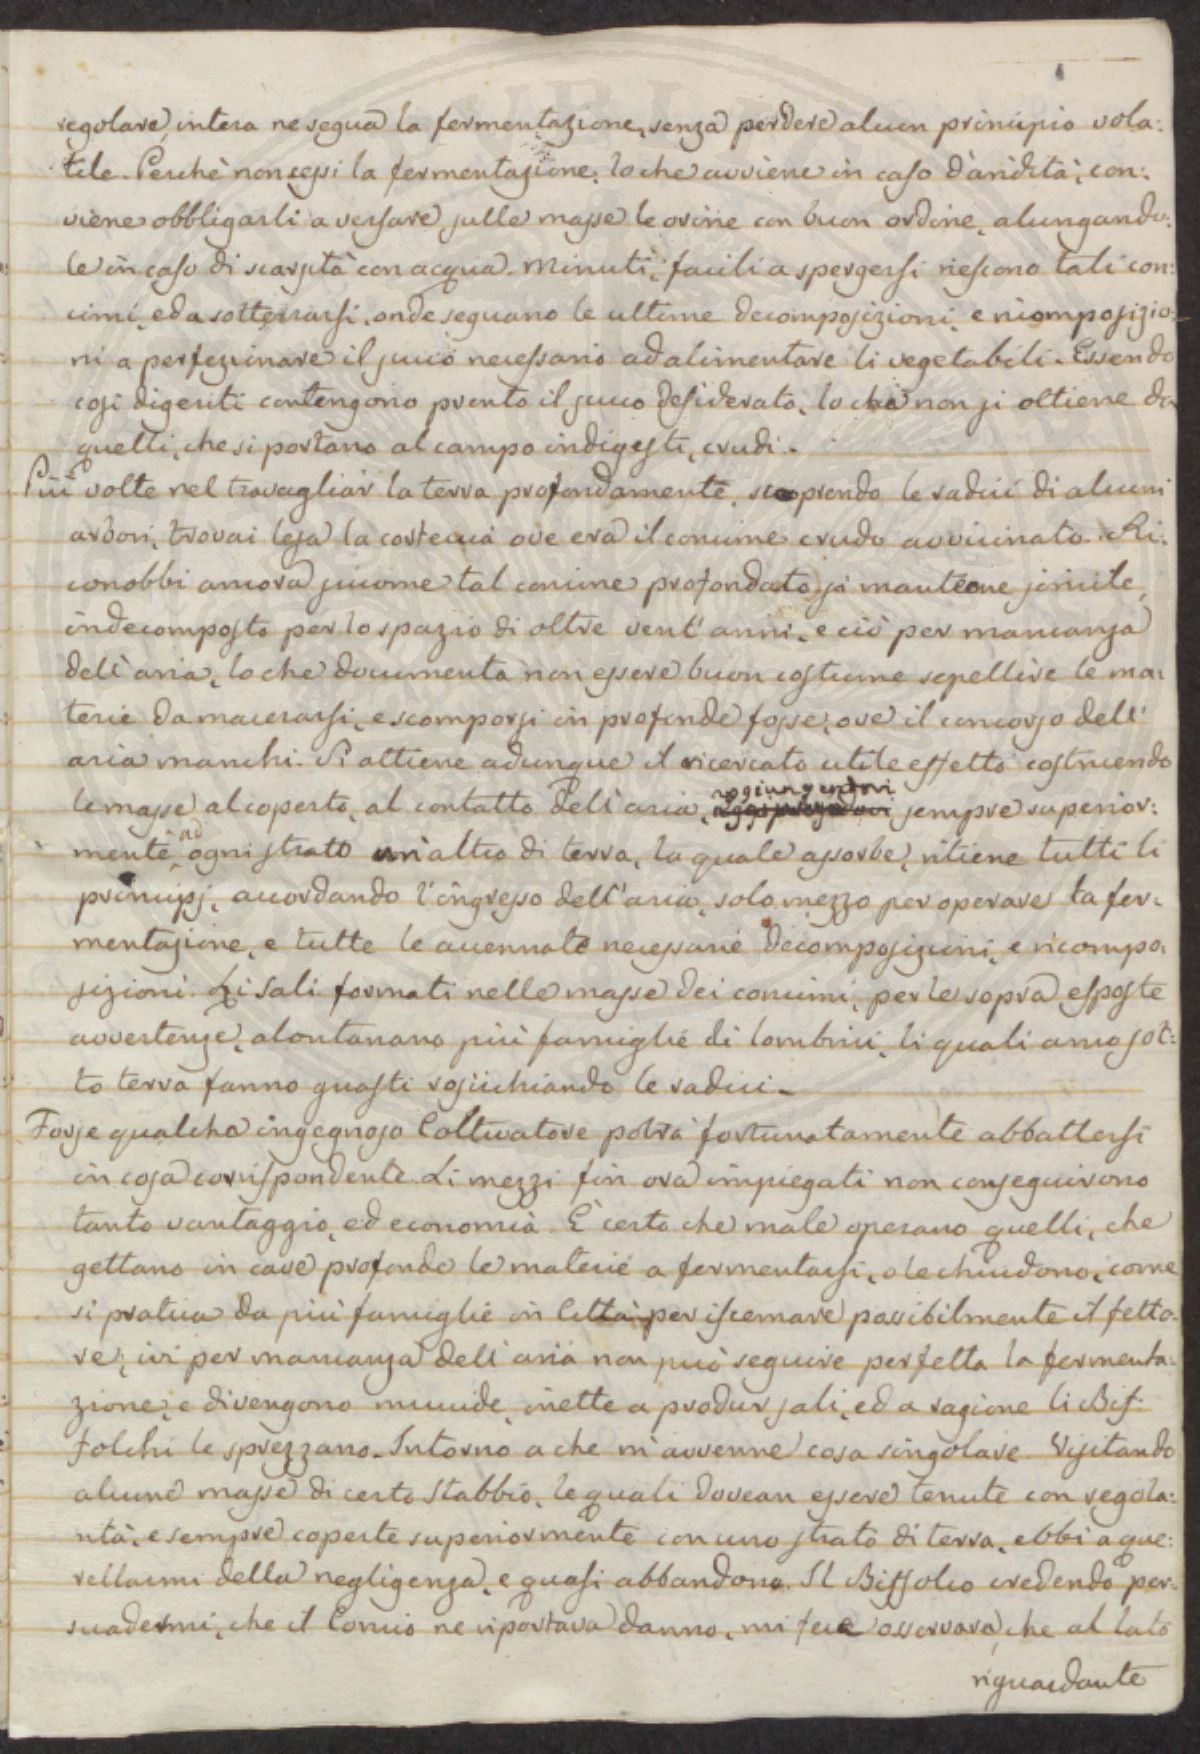 regolare, intera ne segua la fermentazione, senza perdere alcun principio vola:
tile. Perchè non cessi la fermentazione, lo che avviene in caso d'aridità, con:
viene obbligarli a versare sulle masse le orine con buon ordine, alungando:
le in caso di scarsità con acqua. Minuti, facili a spergersi riescono tali con:
cimi, ed a sotterrarsi, onde seguano le ultime decomposizioni, e ricomposizio:
ni a perfezionare il succo necessario ad alimentare li vegetabili. Essendo
così digeriti contengono pronto il succo desiderato, lo che non si ottiene da
quelli, che si portano al campo indigesti, crudi.
Più volte nel travagliar la terra profondamente, scoprendo le radici di alcuni
arbori, trovai lesa la corteccia ove era il concime crudo avvicinato. Ri:
conobbi ancora siccome tal concime profondato si mantiene simile,
indecomposto per lo spazio di oltre vent'anni, e ciò per mancanza
dell'aria, lo che documenta non essere buon costume sepellire le ma:
terie da macerarsi, e scomporsi in profonde fosse, ove il concorso dell'
aria manchi. Si ottiene adunque il ricercato utile effetto costruendo
le masse al coperto, al contatto dell'aria, aggiungendovi sempre superior:
mente ad ogni strato un'altro di terra, la quale assorbe, ritiene tutti li
principj, accordando l'ingresso dell'aria, solo mezzo per operare la fer:
mentazione, e tutte le accennate necessarie decomposizioni, e ricompo:
sizioni. Li Sali formati nelle masse dei concimi, per le sopra esposte
avvertenze, alontanano più famiglie di lombrici, li quali anno sot:
to terra fanno guasti rosicchiando le radici.
Forse qualche ingegnoso Coltivatore potrà fortunatamente abbattersi
in cosa corrispondente. Li mezzi fin ora impiegati non conseguirono
tanto vantaggio, ed economia. È certo che male operano quelli, che
gettano in cave profonde le materie a fermentarsi, o le chiudono, come
si pratica da più famiglie in Città per iscemare possibilmente il fetto:
re; ivi per mancanza dell'aria non può seguire perfetta la fermenta:
zione, e divengono mucide, inette a produr sali, ed a ragione li Bif:
folchi le sprezzano. Intorno a che m'avvenne cosa singolare. Visitando
alcune masse di certo Stabbio, le quali dovean essere tenute con regola:
rità, e sempre coperte superiormente con uno strato di terra, ebbi a que:
rellarmi della negligenza, e quasi abbandono. Il Biffolco credendo per:
suadermi, che il Concio ne riportava danno, mi fece osservare, che al lato
riguardante